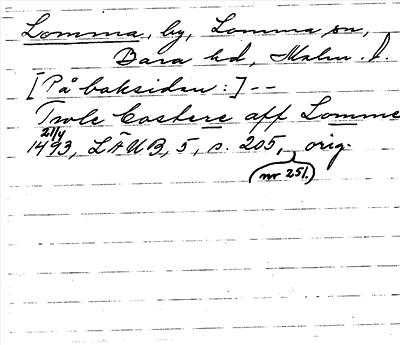 Lomma, by, Lomma sn,
Bara hd, Malm. l.
[På baksidan:] --
Trole Costere aff Lomme
21/4
1493, LÄUB, 5, s. 205, orig.
(nr 251.)